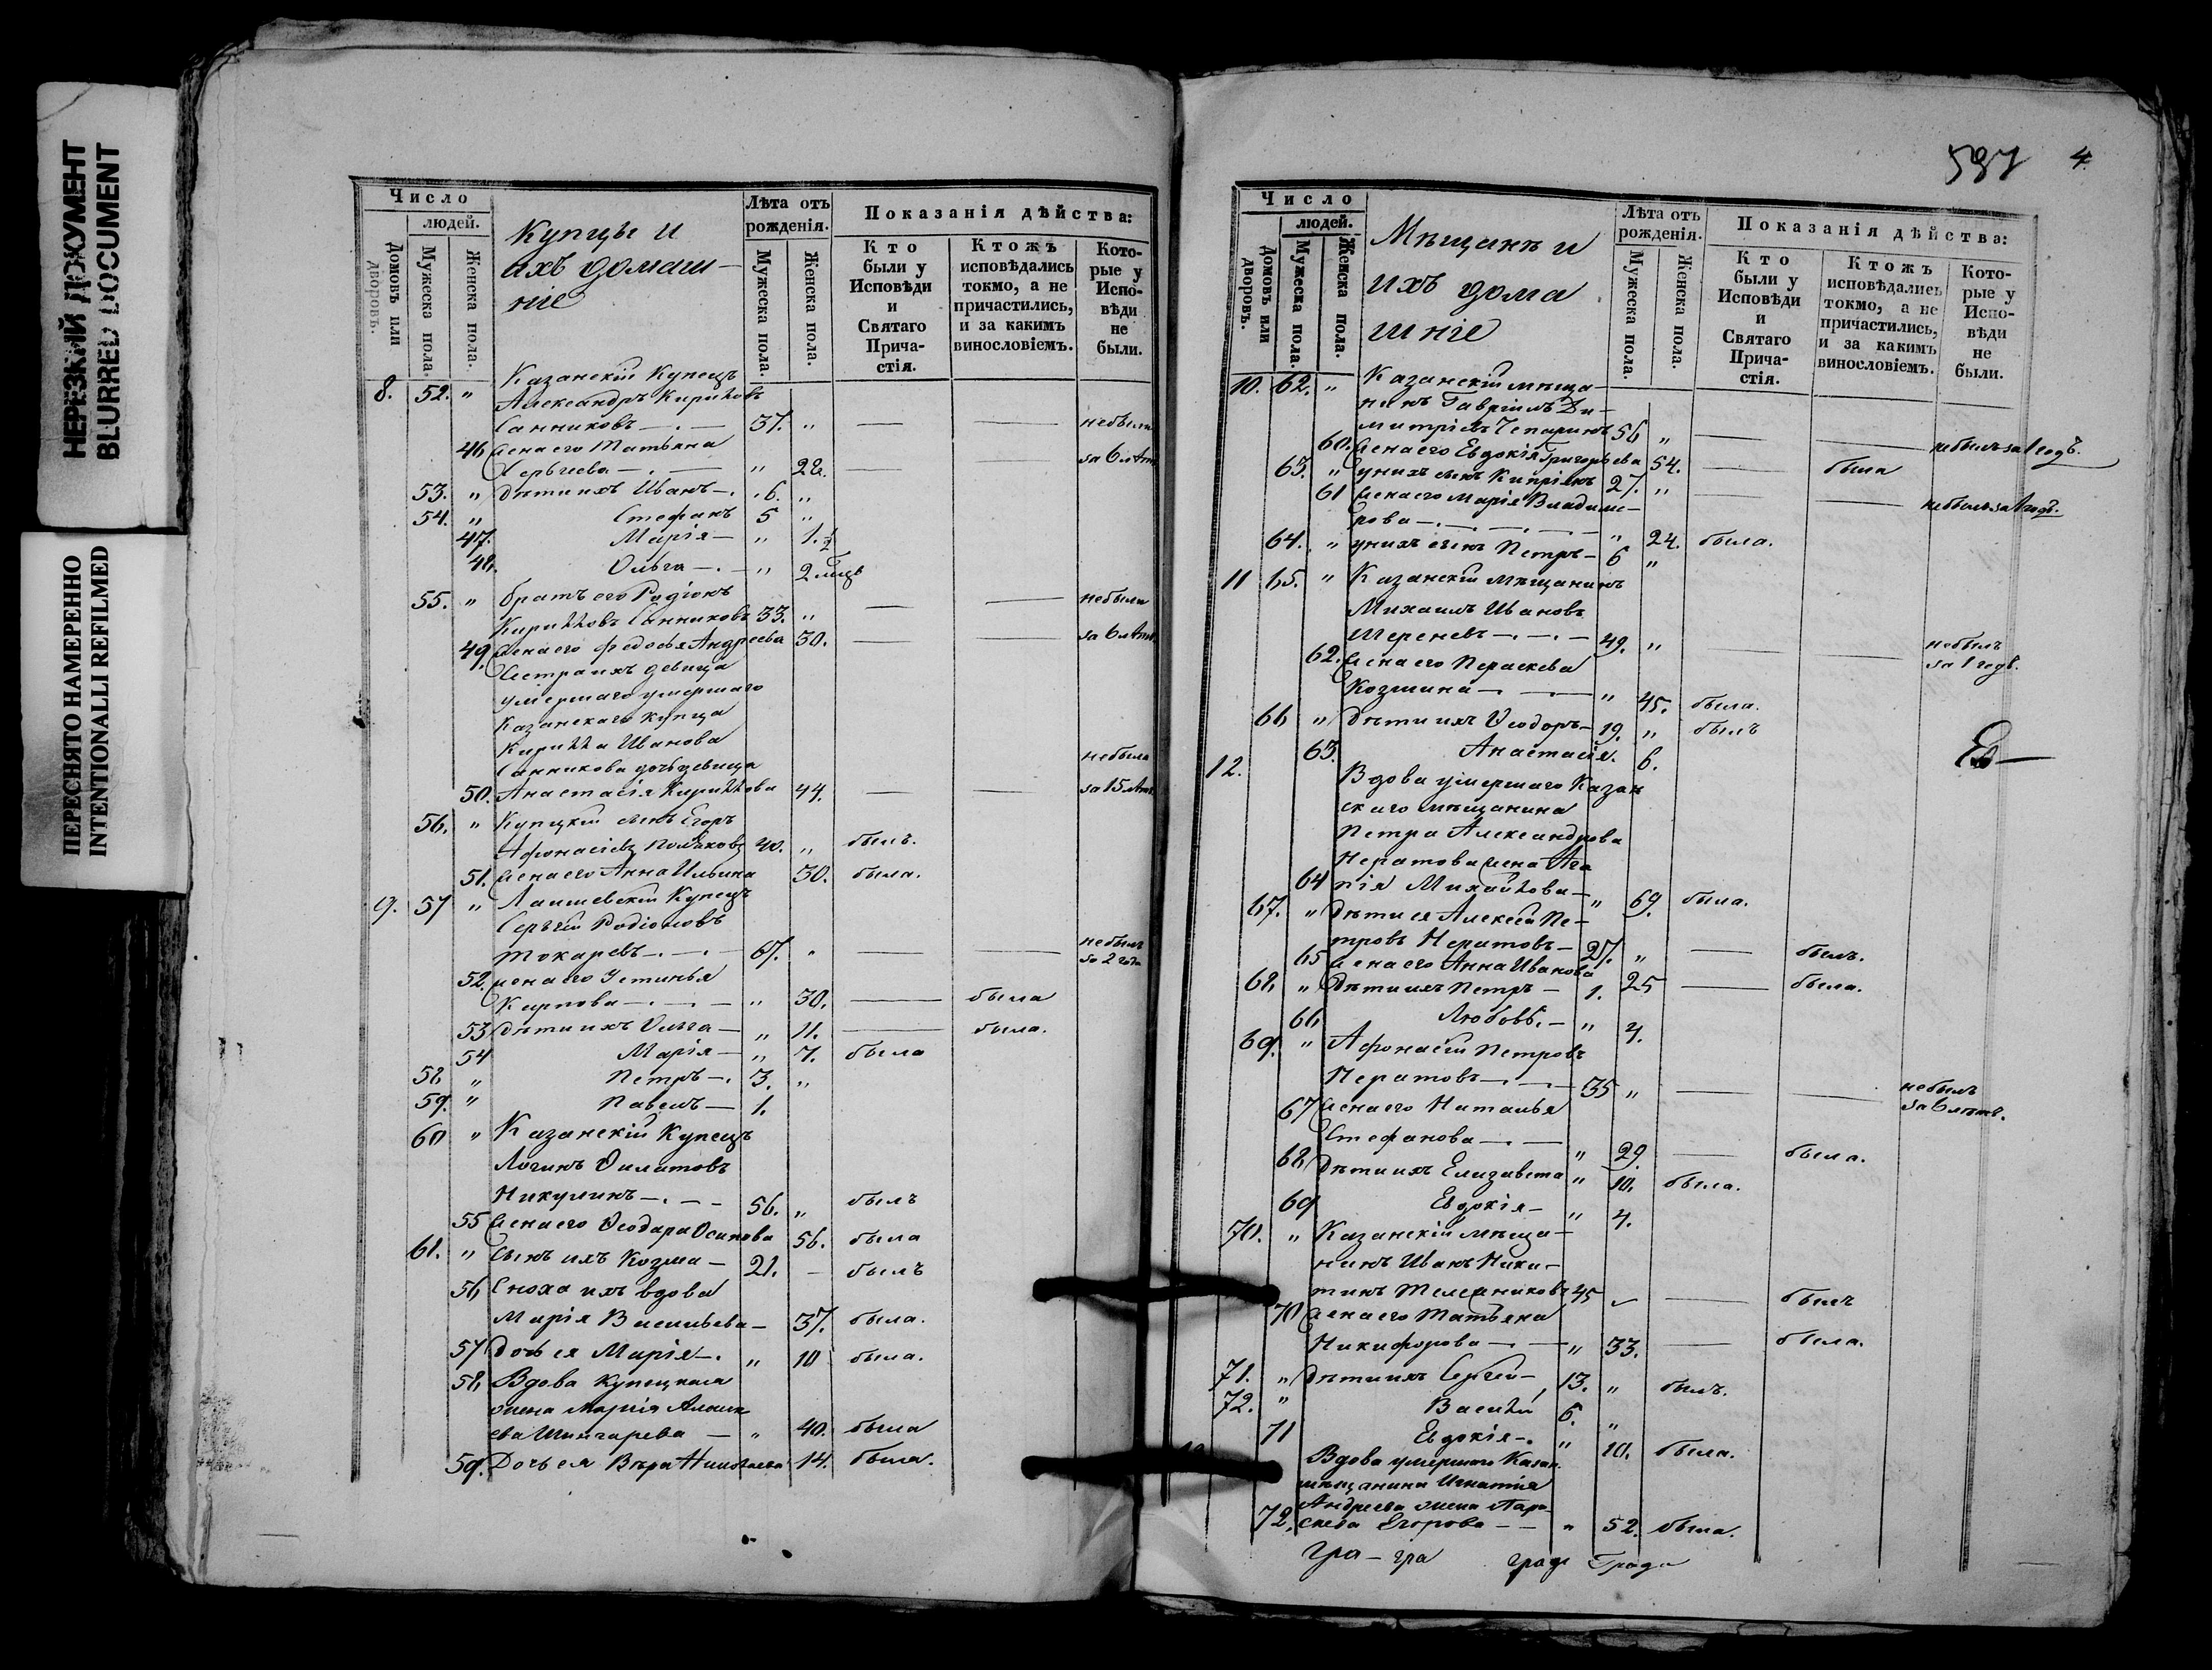 НЕРЕЗКИЙ ДОКУМЕНТ
BLURRED DOCUMENT
ПЕРЕСНЯТО НАМЕРЕННО
INTENTIONALLI REFILMED
Число
людей.
Домовъ или дворовъ.
Мужеска пола.
Женска пола.
Купцы и
ихъ домаш-
ніе
Лѣта отъ рожденія.
Мужеска пола.
Женска пола.
Показанія дѣйства:
Кто были у Исповѣди и Святаго Причастія.
Ктожъ исповѣдались токмо, а не причастились, и за какимъ винословіемъ.
Которые у Исповѣди не были.
8. 52. " Казанскій Купецъ
Александръ Кирилловъ
Санниковъ 37. " — — небыли
46 Жена его Татьяна за 6 лѣтъ
Сергѣева " 28.
53. " Дѣти ихъ Иванъ 6. "
54. " Стефанъ 5 "
47. Марія " 1.½
48. Ольга " 2 мѣсц
55. " Братъ его Родіонъ небыли
Кирилловъ Санниковъ 33. " — —
49. Жена его Федосья Андреева 30. — — за 6 лѣтъ
Сестра ихъ девица
умершаго умершаго
Казанскаго купца
Кирилла Иванова
Санникова дочь девица небыла
50. Анастасія Кириллова 44. — — за 15 лѣтъ
56. " Купецкій сынъ Егоръ
Афонасіевъ Поляковъ 40. " былъ.
51. Жена его Анна Ильина 30. была.
9. 57 " Лаишевскій Купецъ
Сергѣй Родіоновъ
Токаревъ 67. " — — небылъ за 2 года
52. Жена его Устинья
Карпова " 30. — была
53 Дѣти ихъ Ольга " 11. — была.
54 Марія " 7. была
58 " Петръ 3. "
59. " Павелъ 1.
60 " Казанскій Купецъ
Логинъ Филатовъ
Никулинъ 56. " былъ
55 Жена его Ѳеодора Осипова 56. была
61. " Сынъ ихъ Козма 21. — былъ
56 Сноха ихъ вдова
Марія Васильева 37. была.
57 Дочь ея Марія " 10 была.
58. Вдова купецкая
жена Марія Алексѣ
ева " 40. была
59. Дочь ея Вѣра Николаева 14. была.
597 4.
Число
людей.
Домовъ или дворовъ.
Мужеска пола.
Женска пола.
Мѣщанѣ и
ихъ дома
шніе
Лѣта отъ рожденія.
Мужеска пола.
Женска пола.
Показанія дѣйства:
Кто были у Исповѣди и Святаго Причастія.
Ктожъ исповѣдались токмо, а не причастились, и за какимъ винословіемъ.
Которые у Исповѣди не были.
10. 62. " Казанскій мѣща-
нинъ Гавріилъ Ди-
митріевъ Чепаринъ 56 " — — небылъ за 1 годъ.
60. Жена его Евдокія Григорьева 54. — была
63. " у нихъ сынъ Кипріянъ 27. " — — небылъ за 1 годъ.
61 Жена его Марія Владими-
рова " 24. была.
64. " у нихъ сынъ Петръ 6 "
11 65. " Казанскій мѣщанинъ
Михаилъ Ивановъ
49. " — — небылъ за 1 годъ.
62. Жена его Пераскева
Козмина " 45. была.
66 " Дѣти ихъ Ѳеодоръ 19. " былъ
63. Анастасія. 6.
12. Вдова умершаго Казан
скаго мѣщанина
Петра Александрова
Нератова жена Ага
64 пія Михайлова " 69. была.
67. " Дѣти ея Алексѣй Пе-
тровъ Нератовъ 27. " — былъ.
65 Жена его Анна Иванова 25 — была.
68. " Дѣти ихъ Петръ 1.
66 Любовь. " 4.
69. " Афонасій Петровъ
Нератовъ 35 " — — небылъ за 6 лѣтъ.
67 Жена его Наталья
Стефанова " 29. — была.
68 Дѣти ихъ Елизавета " 10. была.
69 Евдокія " 4.
70. " Казанскій мѣща-
нинъ Иванъ Ники-
тинъ 45 " — былъ
70 Жена его Татьяна
Никифорова " 33. — была.
71. " Дѣти ихъ Сергѣй 13. " былъ.
72. " Василій 6. "
71 Евдокія " 10. была.
Вдова умершаго Казан.
мѣщанина Игнатія
Андреева жена Пара-
72. скева Егорова " 52. была.
Гра - гра град Града